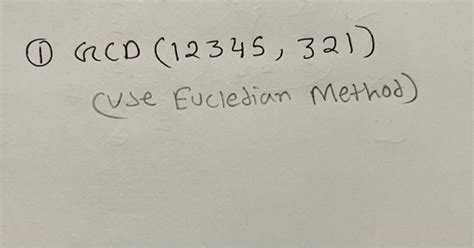 ① GCD (12345, 321)
(Use Eucledian Method)